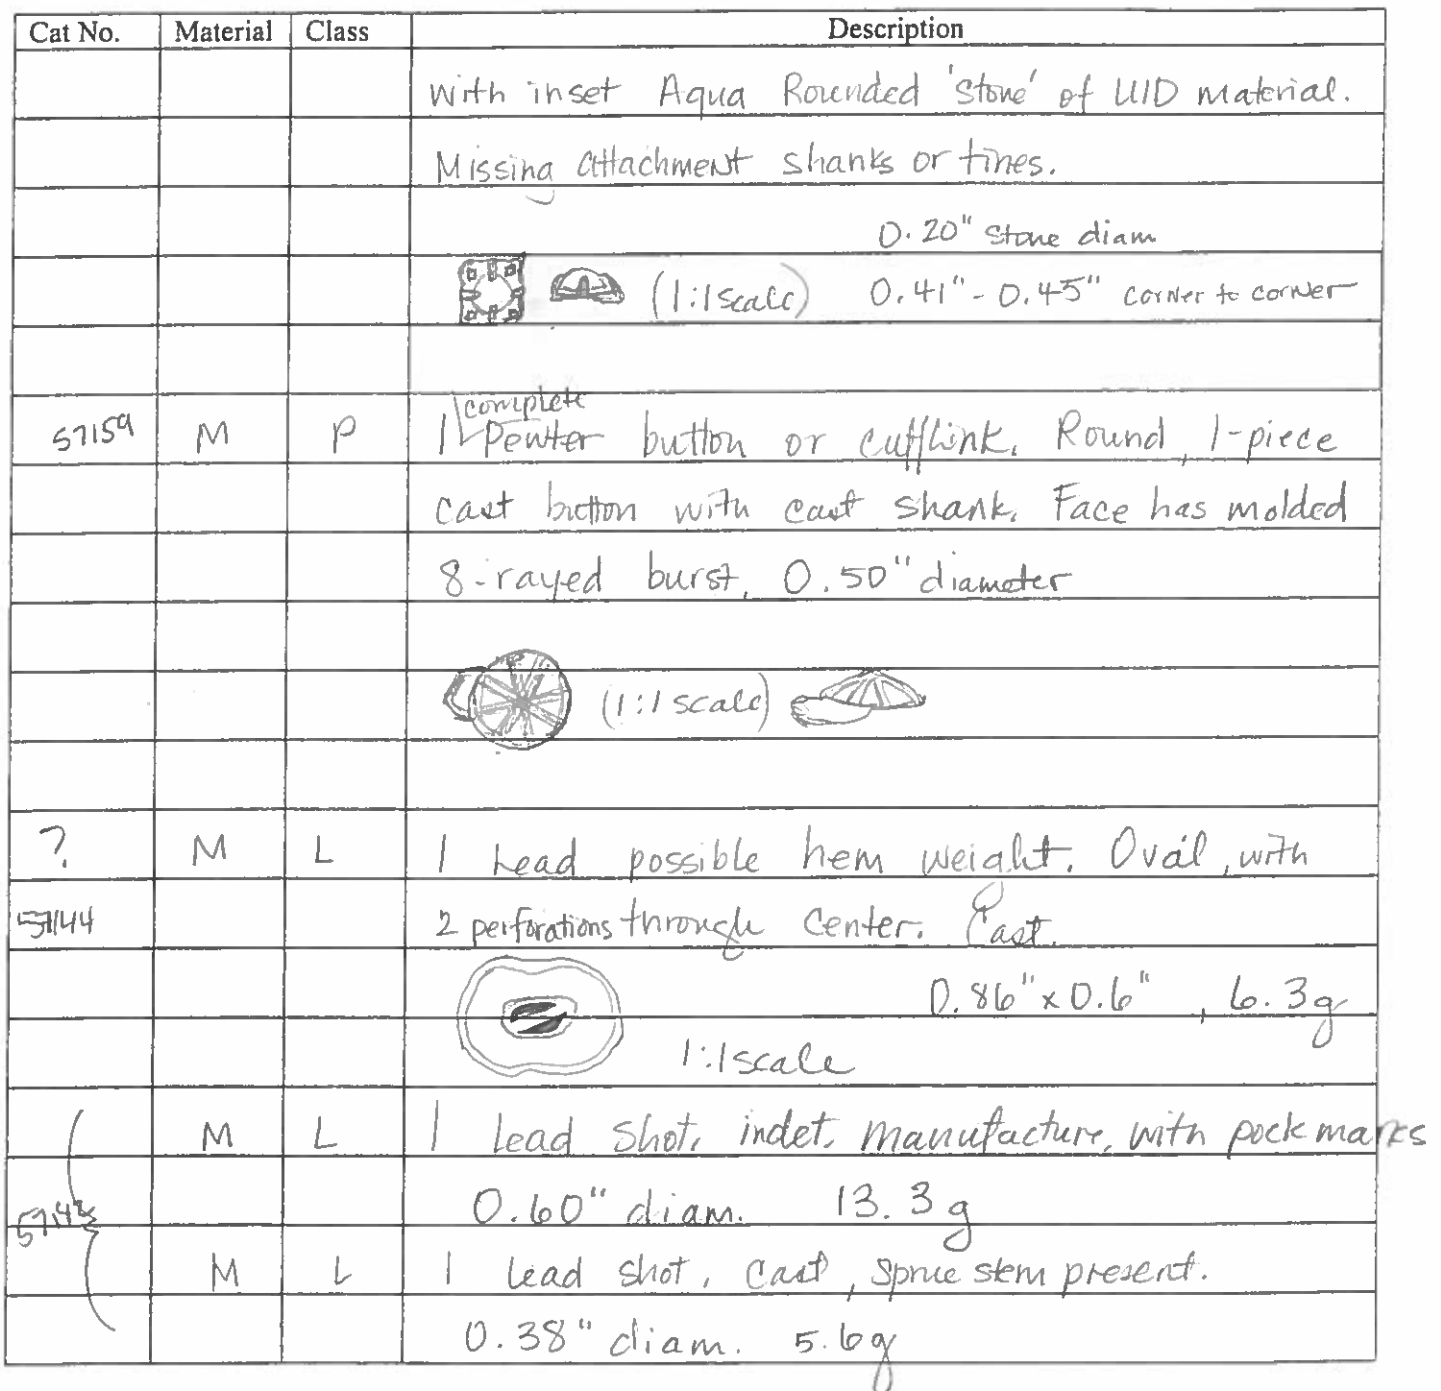 Cat No. Material Class Description
With inset Aqua Rounded 'Stone' of UID material.
Missing attachment shanks or tines.
0.20" stone diam
(1:1 scale) 0.41" - 0.45" corner to corner
complete
57159 M P 1 Pewter button or cufflink. Round, 1-piece
cast button with cast shank. Face has molded
8-rayed burst, 0.50" diameter
(1:1 scale)
? M L 1 Lead possible hem weight. Oval, with
57144 2 perforations through center. Cast.
0.86" x 0.6", 6.3g
1:1 scale
M L 1 lead shot, indet. manufacture, with pock marks
0.60" diam. 13.3 g
M L 1 lead shot, cast, sprue stem present.
0.38" diam. 5.6g